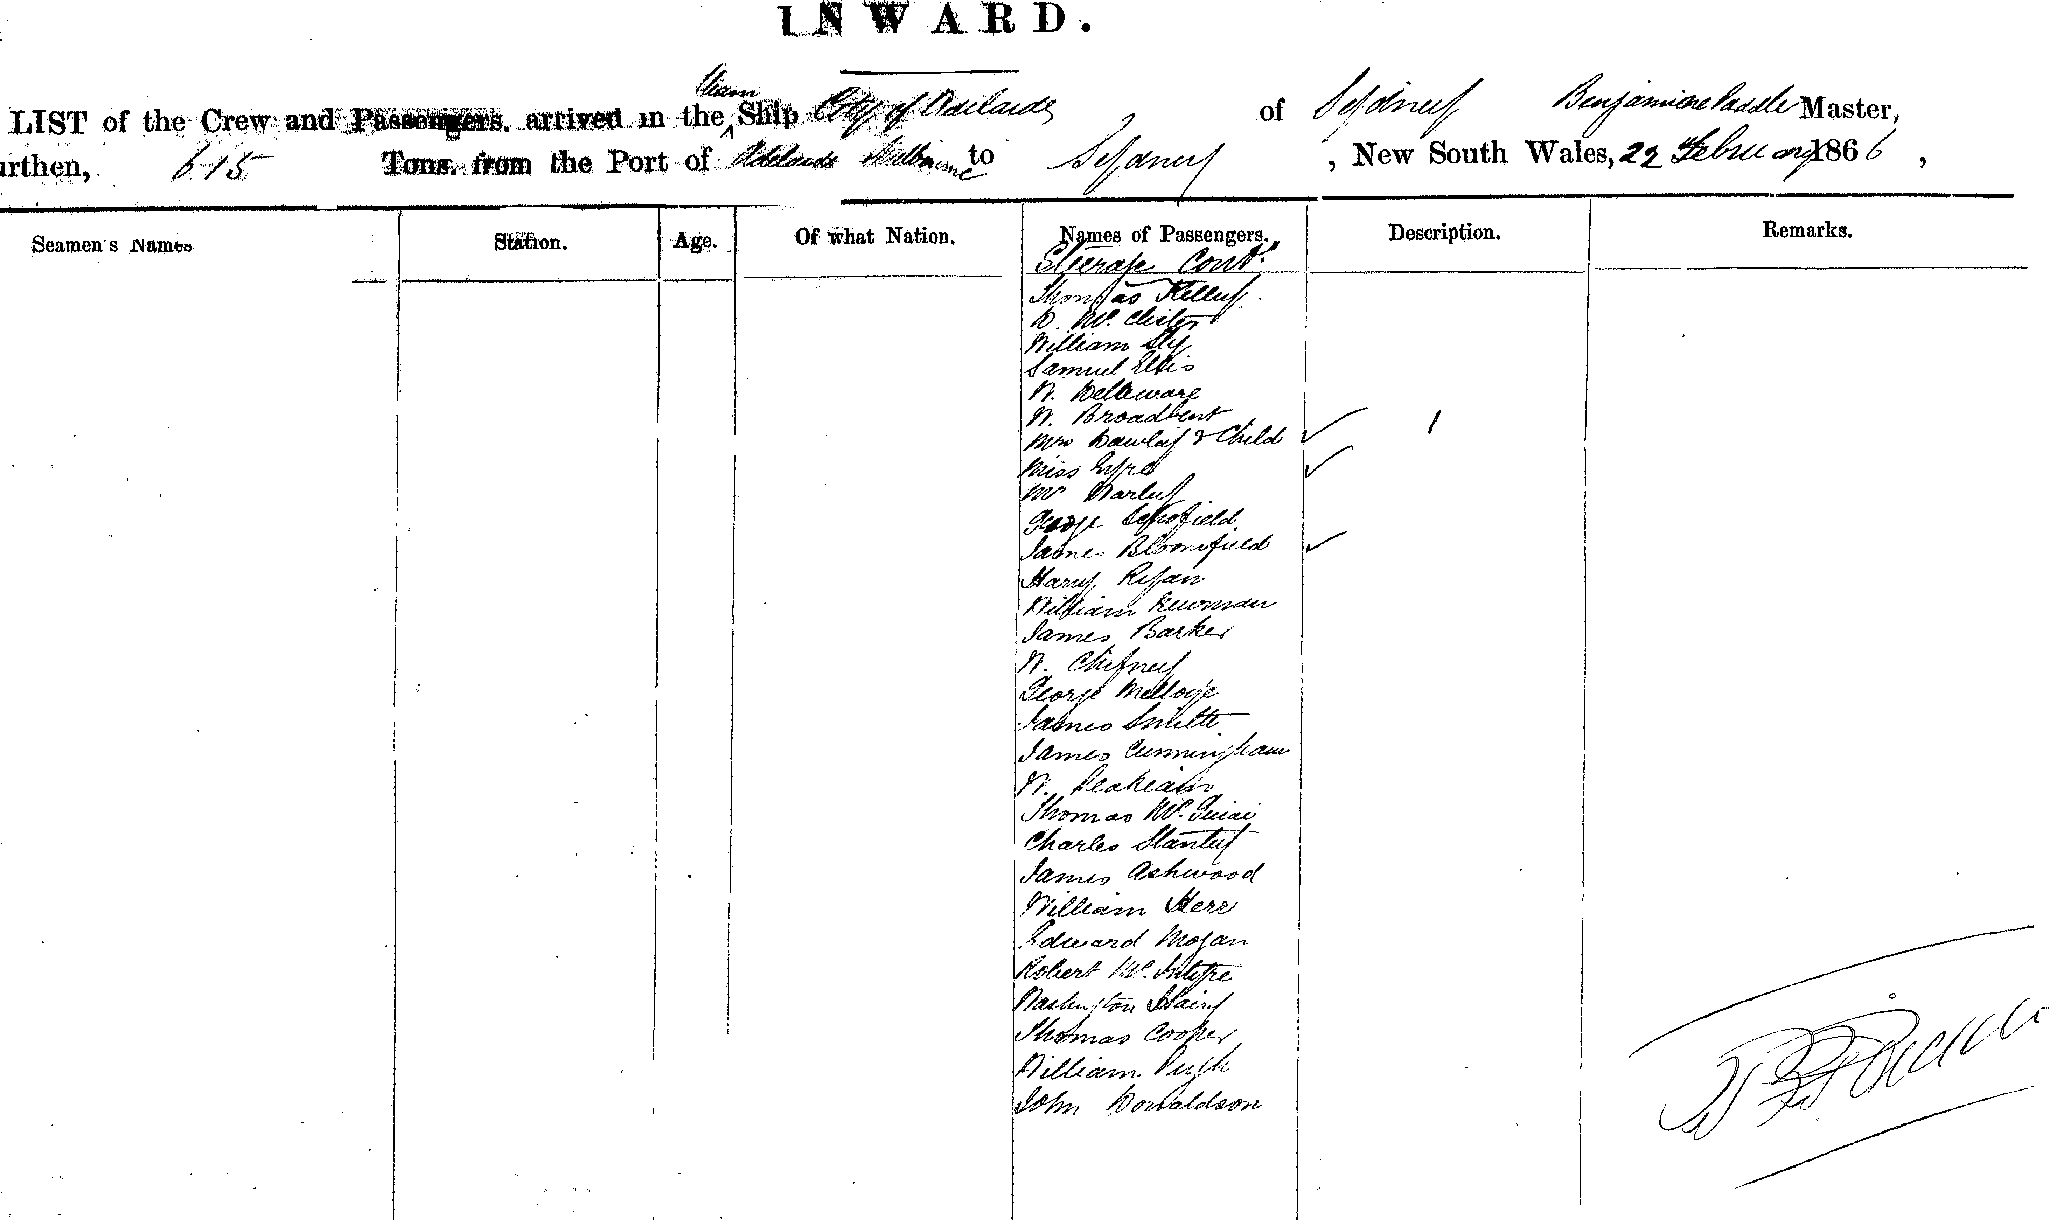 INWARD.
Steam
LIST of the Crew and Passengers. arrived in the Ship City of Adelaide of Sydney Benjamin Master,
urthen, 615 Tons. from the Port of Adelaide Melbourne to Sydney, New South Wales, 22 February 1866,
Seamen's Names Station. Age. Of what Nation. Names of Passengers. Description. Remarks.
Steerage Contd.
Thomas Kelly
D. Mc.
William Sly
Samuel Ellis
W. Dellaware
W. Broadbent
Mrs Dawley & Child ✓ 1
Miss Eyre ✓
Mr Darley
George Schofield
James Bloomfield ✓
Harry Ryan
William Newman
James Barker
W. Chifney
George
James Smith
James Cunningham
W.
Thomas Mc.
Charles Stanley
James Ashwood
William Herr
Edward Mogan
Robert Mc. Intyre
Washington
Thomas Cooper
William Pugh
John Donaldson